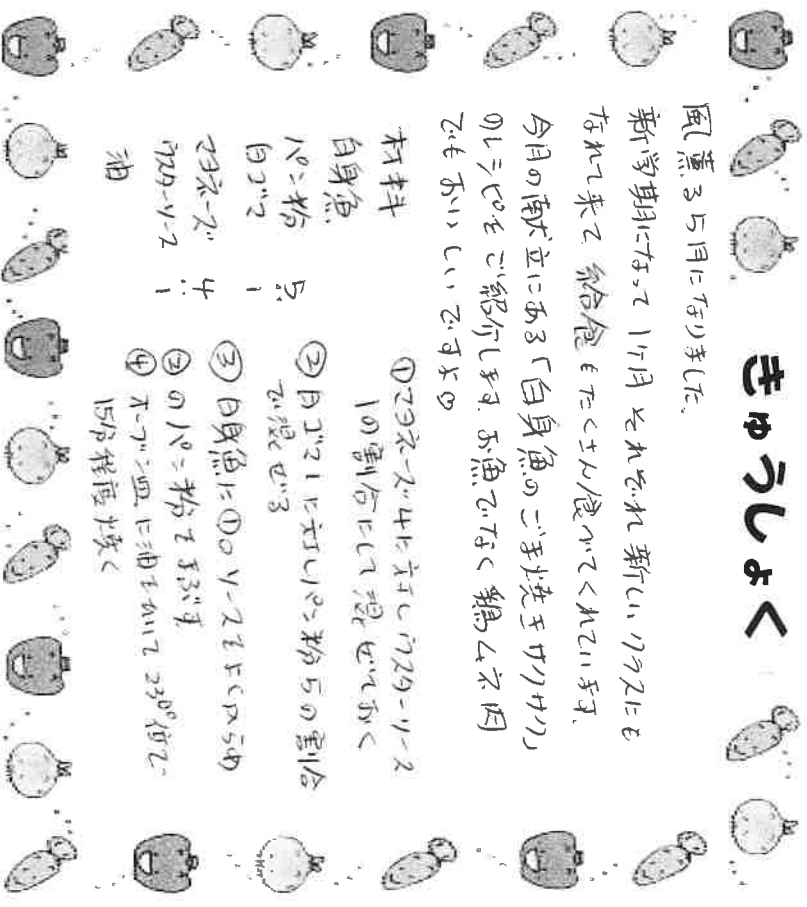 きゅうしょく
風薫る5月になりました。
新学期になって1ヶ月 それぞれ新しいクラスにも
なれて来て 給食もたくさん食べてくれています。
今月の献立にある「白身魚のごま焼きサクサク」
のレシピをご紹介します。お魚でなく鶏ムネ肉
でもおいしいですよ♡
材料
白身魚
パン粉 5:
白ゴマ 1
マヨネーズ 4:
ウスターソース 1
油
①マヨネーズ4に対しウスターソース
1の割合にして混ぜておく
②白ゴマ1に対しパン粉5の割合
で混ぜる
③白身魚に①のソースをよくからめ
②のパン粉をまぶす
④オーブン皿に油をひいて 230°位で
15分程度焼く